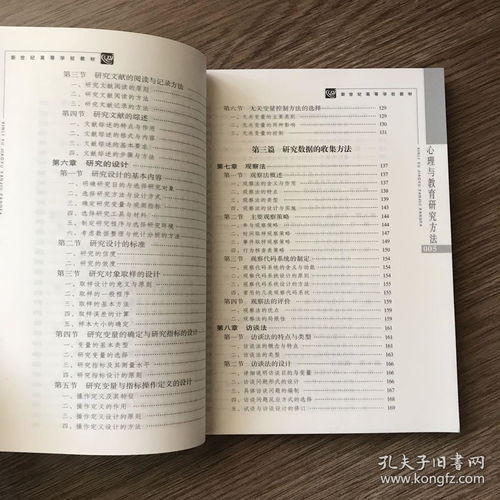 新世纪高等学校教材
第三节 研究文献的阅读与记录方法
一、研究文献阅读的原则
二、研究文献阅读的方法
三、研究文献记录的方法
第四节 研究文献的综述
一、文献综述的特点与作用
二、文献综述的格式与内容
三、文献综述的基本要求
四、文献综述的步骤与方法
第六章 研究的设计
第一节 研究设计的基本内容
一、明确研究目的与选择研究对象
二、选择研究方法与设计方式
三、确定研究变量与观测指标
四、选择研究工具与材料
五、制定研究程序与选择研究环境
六、考虑数据整理与统计分析的方法
第二节 研究设计的标准
一、研究的信度
二、研究的效度
第三节 研究对象取样的设计
一、取样设计的意义与原则
二、取样的一般程序
三、取样的基本方法
四、取样误差的计算
五、样本大小的确定
第四节 研究变量的确定与研究指标的设计
一、变量的基本类型
二、研究变量的选择
三、研究指标及其测量水平
四、研究指标设计的原则
第五节 研究变量与指标操作定义的设计
一、操作定义及其特征
二、操作定义的作用
三、操作定义设计的原则
四、操作定义设计的方法
XINLI YU JIAOYU YANJIU FANGFA
新世纪高等学校教材
第六节 无关变量控制方法的选择 129
一、无关变量的主要类别 129
二、无关变量的两种影响 131
三、无关变量的控制 131
第三篇 研究数据的收集方法
第七章 观察法 137
第一节 观察法概述 137
一、观察法的含义与作用 137
二、观察法的特点
三、观察法的类型
四、观察法的设计与实施
第二节 主要观察策略
一、参与观察策略
二、时间取样观察策略
三、事件取样观察策略
四、行为核查表策略
第三节 观察代码系统的制定
一、观察代码系统的含义与功能
二、观察代码系统的设计原则
三、观察代码系统设计的方法
四、常用的几类观察代码系统
第四节 观察法的评价
一、观察法的优点 158
二、观察法的局限性
第八章 访谈法 161
第一节 访谈法的特点与类型 161
一、访谈法的概念与特点 161
二、访谈法的类型
第二节 访谈法的设计 165
一、详细说明访谈目的与变量
二、访谈问题形式的设计
三、具体访谈问题的编制
四、访谈问题反应方式的选择 168
五、试谈与访谈设计的修订 169
心理与教育研究方法
XINLI YU JIAOYU YANJIU FANGFA
005
孔夫子旧书网
www.kongfz.com